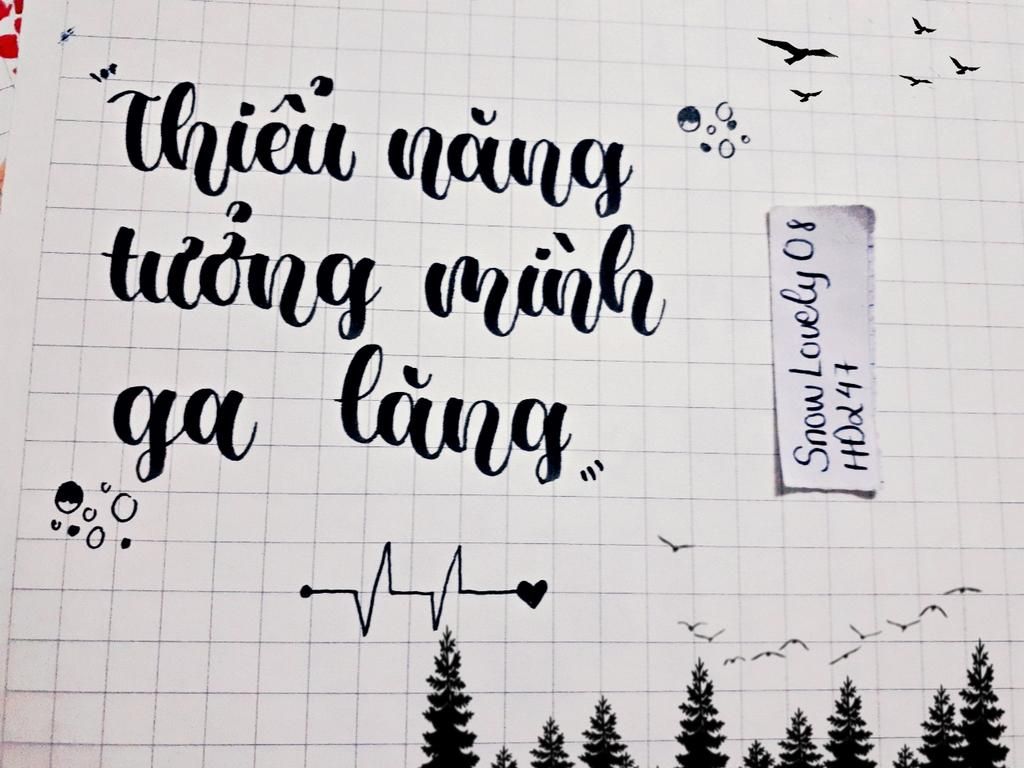 "Thiểu năng
tưởng mình
ga lăng"
Snow Lovely 08
HĐ247